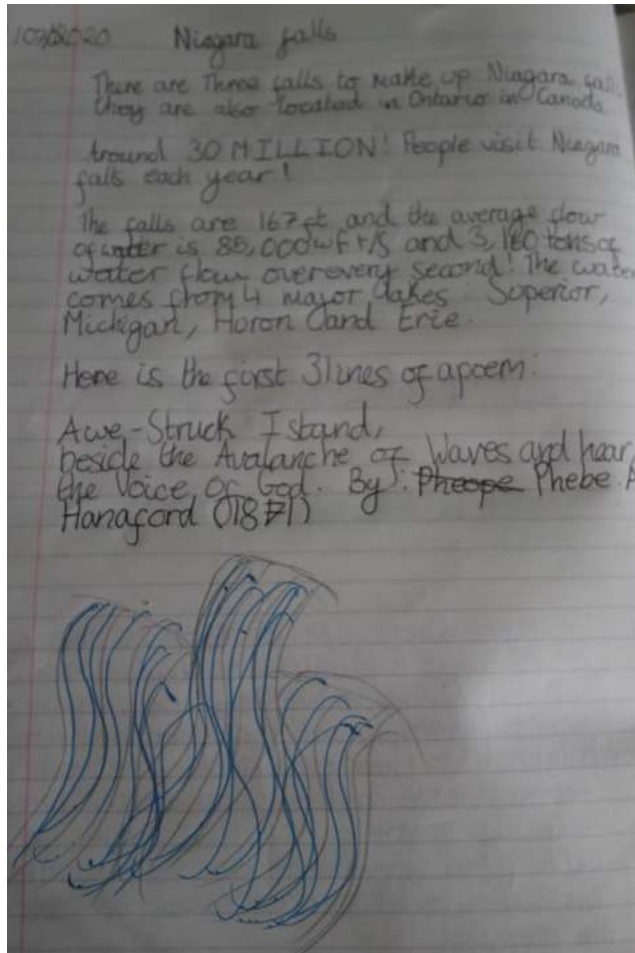 Niagara falls
There are Three falls to make up Niagara fall
they are also located in Ontario in Canada
Around 30 MILLION! People visit Niagara
falls each year!
The falls are 167ft and the average flow
of water is 85,000 and 3,160 tons of
water flow over every second! The water
comes from 4 major lakes: Superior,
Michigan, Horon and Erie.
Here is the first 3 lines of a poem:
Awe-Struck I stand,
beside the Avalanche of Waves and hear,
the Voice of God. By: Phebe. A
Hanaford (1871)